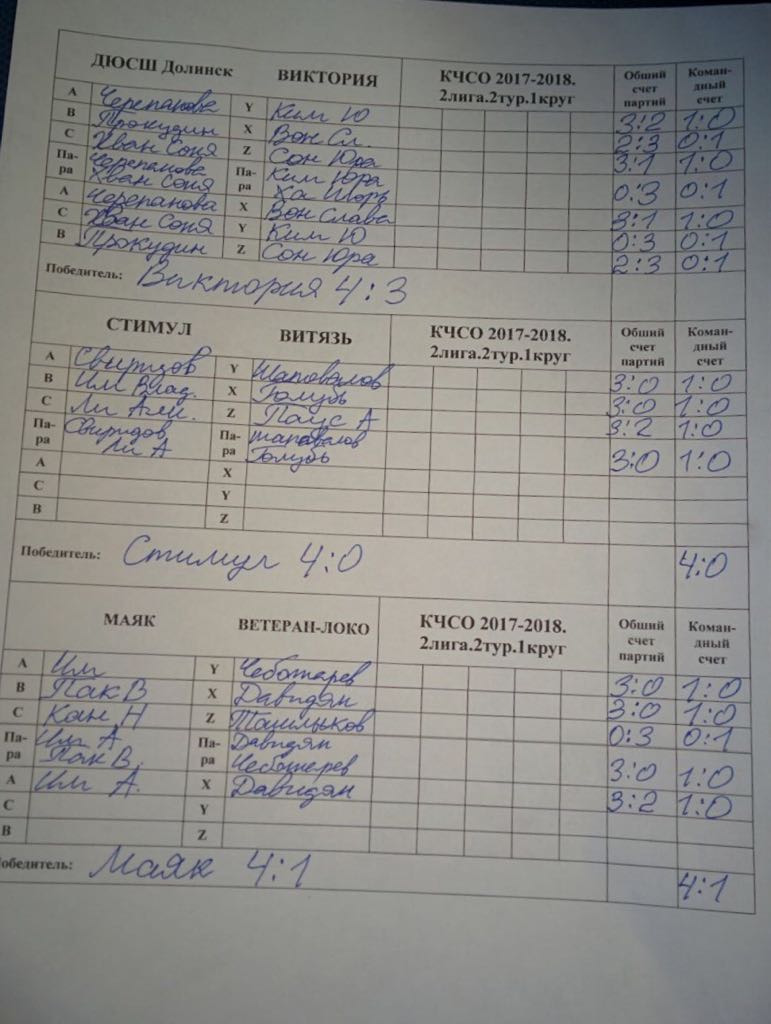 ДЮСШ Долинск ВИКТОРИЯ КЧСО 2017-2018. 2лига.2тур.1круг Общий счет партий Коман-дный счет
A Черепанова Y Ким Ю 3:2 1:0
B Прокудин X Вон Сл. 2:3 0:1
C Хван Соня Z Сон Юра 3:1 1:0
Па-ра Черепанова Хван Соня Па-ра Ким Юра Ха Игорь 0:3 0:1
A Черепанова X Вон Слава 3:1 1:0
C Хван Соня Y Ким Ю 0:3 0:1
B Прокудин Z Сон Юра 2:3 0:1
Победитель: Виктория 4:3
СТИМУЛ ВИТЯЗЬ КЧСО 2017-2018. 2лига.2тур.1круг Общий счет партий Коман-дный счет
A Свиридов Y Шаповалов 3:0 1:0
B Им Влад. X Голубь 3:0 1:0
C Ли Z А 3:2 1:0
Па-ра Свиридов, Ли А Па-ра Шаповалов Голубь 3:0 1:0
A X
C Y
B Z
Победитель: Стимул 4:0 4:0
МАЯК ВЕТЕРАН-ЛОКО КЧСО 2017-2018. 2лига.2тур.1круг Общий счет партий Коман-дный счет
A Им Y Чеботарев 3:0 1:0
B Пак В X Давидян 3:0 1:0
C Кан Н Z 0:3 0:1
Па-ра Им А Пак В. Па-ра Давидян Чеботерев 3:0 1:0
A Им А. X Давидян 3:2 1:0
C Y
B Z
обедитель: Маяк 4:1 4:1